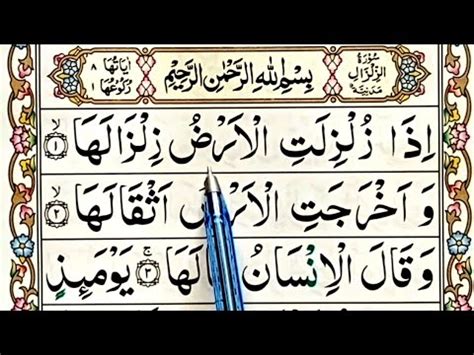 سُوْرَةُ الزِّلْزَالِ مَدَنِيَّةٌ
بِسْمِ اللهِ الرَّحْمٰنِ الرَّحِيْمِ
اٰيَاتُهَا ٨
رُكُوْعُهَا ١
اِذَا زُلْزِلَتِ الْاَرْضُ زِلْزَالَهَا ۙ﴿١﴾
وَ اَخْرَجَتِ الْاَرْضُ اَثْقَالَهَا ۙ﴿٢﴾
وَ قَالَ الْاِنْسَانُ لَهَا ۚ﴿٣﴾ يَوْمَئِذٍ